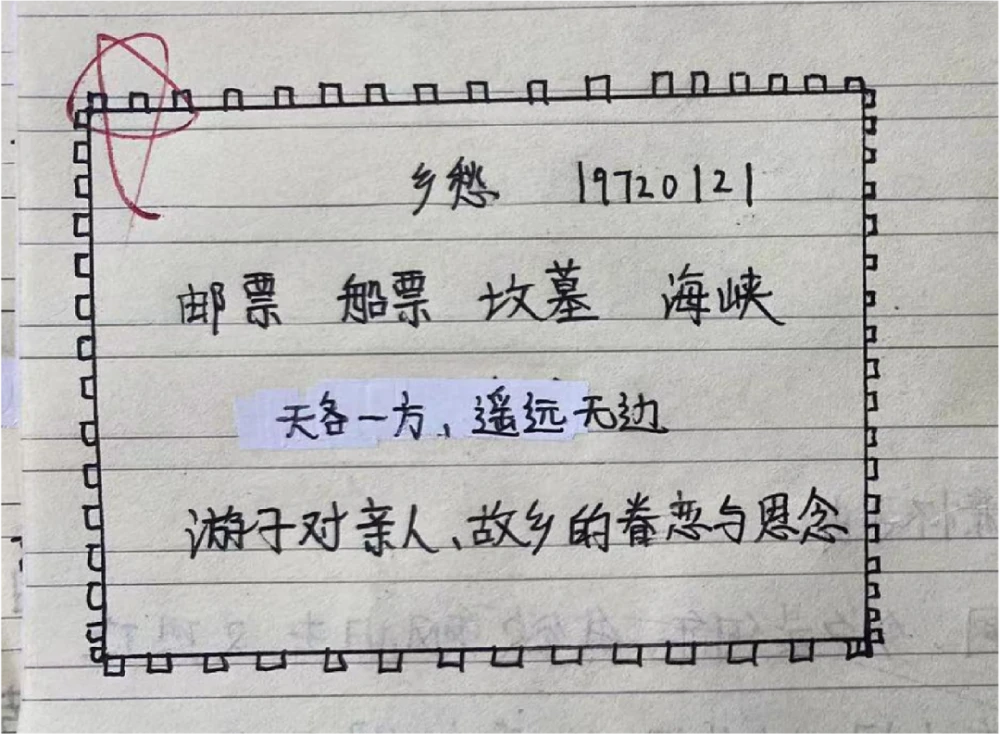 乡愁 19720121
邮票 船票 坟墓 海峡
天各一方、遥远无边
游子对亲人、故乡的眷恋与思念